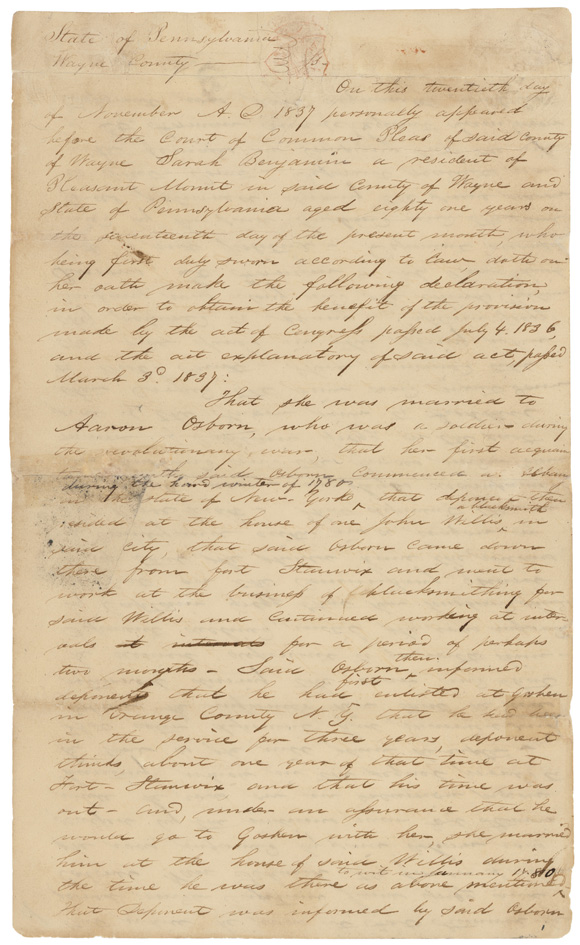 State of Pennsylvania
Wayne County SS
On this twentieth day
of November A D 1837 personally appeared
before the Court of Common Pleas of said county
of Wayne Sarah Benjamin a resident of
Pleasant Mount in said county of Wayne and
State of Pennsylvania aged eighty one years on
the seventeenth day of the present month, who
being first duly sworn according to law, doth on
her oath make the following declaration,
in order to obtain the benefit of the provision
made by the act of Congress passed July 4. 1836,
and the act explanatory of said act, passed
March 3d. 1837:
That she was married to
Aaron Osborn, who was a soldier during
the revolutionary war, that her first acquain
the said Osborn commenced in Albany
during the hard winter of 1780
in the state of New-York, that deponent then
a blacksmith
resided at the house of one John Willis, in
said city, that said Osborn came down
there from fort Stanwix and went to
work at the business of blacksmithing for
said Willis and continued working at inter-
vals at intervals for a period of perhaps
then
two months - Said Osborn informed
first
deponent that he had enlisted at Goshen
in Orange County N. Y. that he had been
in the service for three years, deponent
thinks, about one year of that time at
Fort-Stanwix and that his time was
out - and, under an assurance that he
would go to Goshen with her she married
him at the house of said Willis during
to wit in January 1780
the time he was there as above mentioned
That deponent was informed by said Osborn,